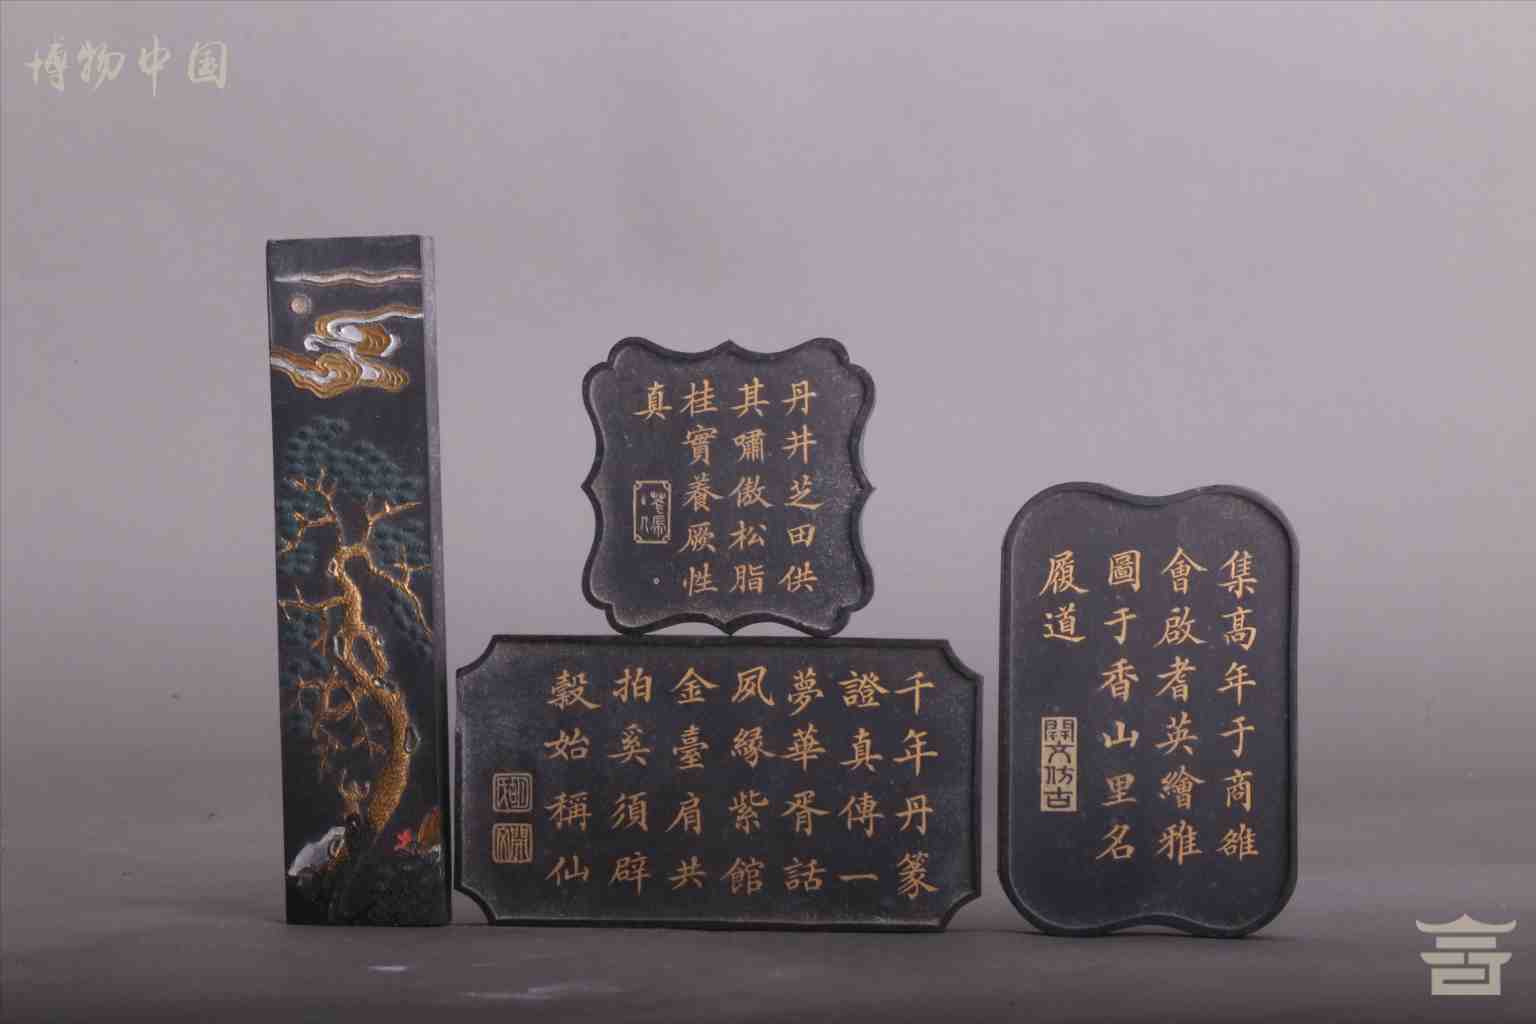 博物中国
丹井芝田供
其嘯傲松脂
桂實養厥性
真
千年丹篆
證真傳一
夢華胥話
夙緣紫館
金臺肩共
拍奚須辟
穀始稱仙
集高年于商雒
會啟耆英繪雅
圖于香山里名
履道
開文仿古